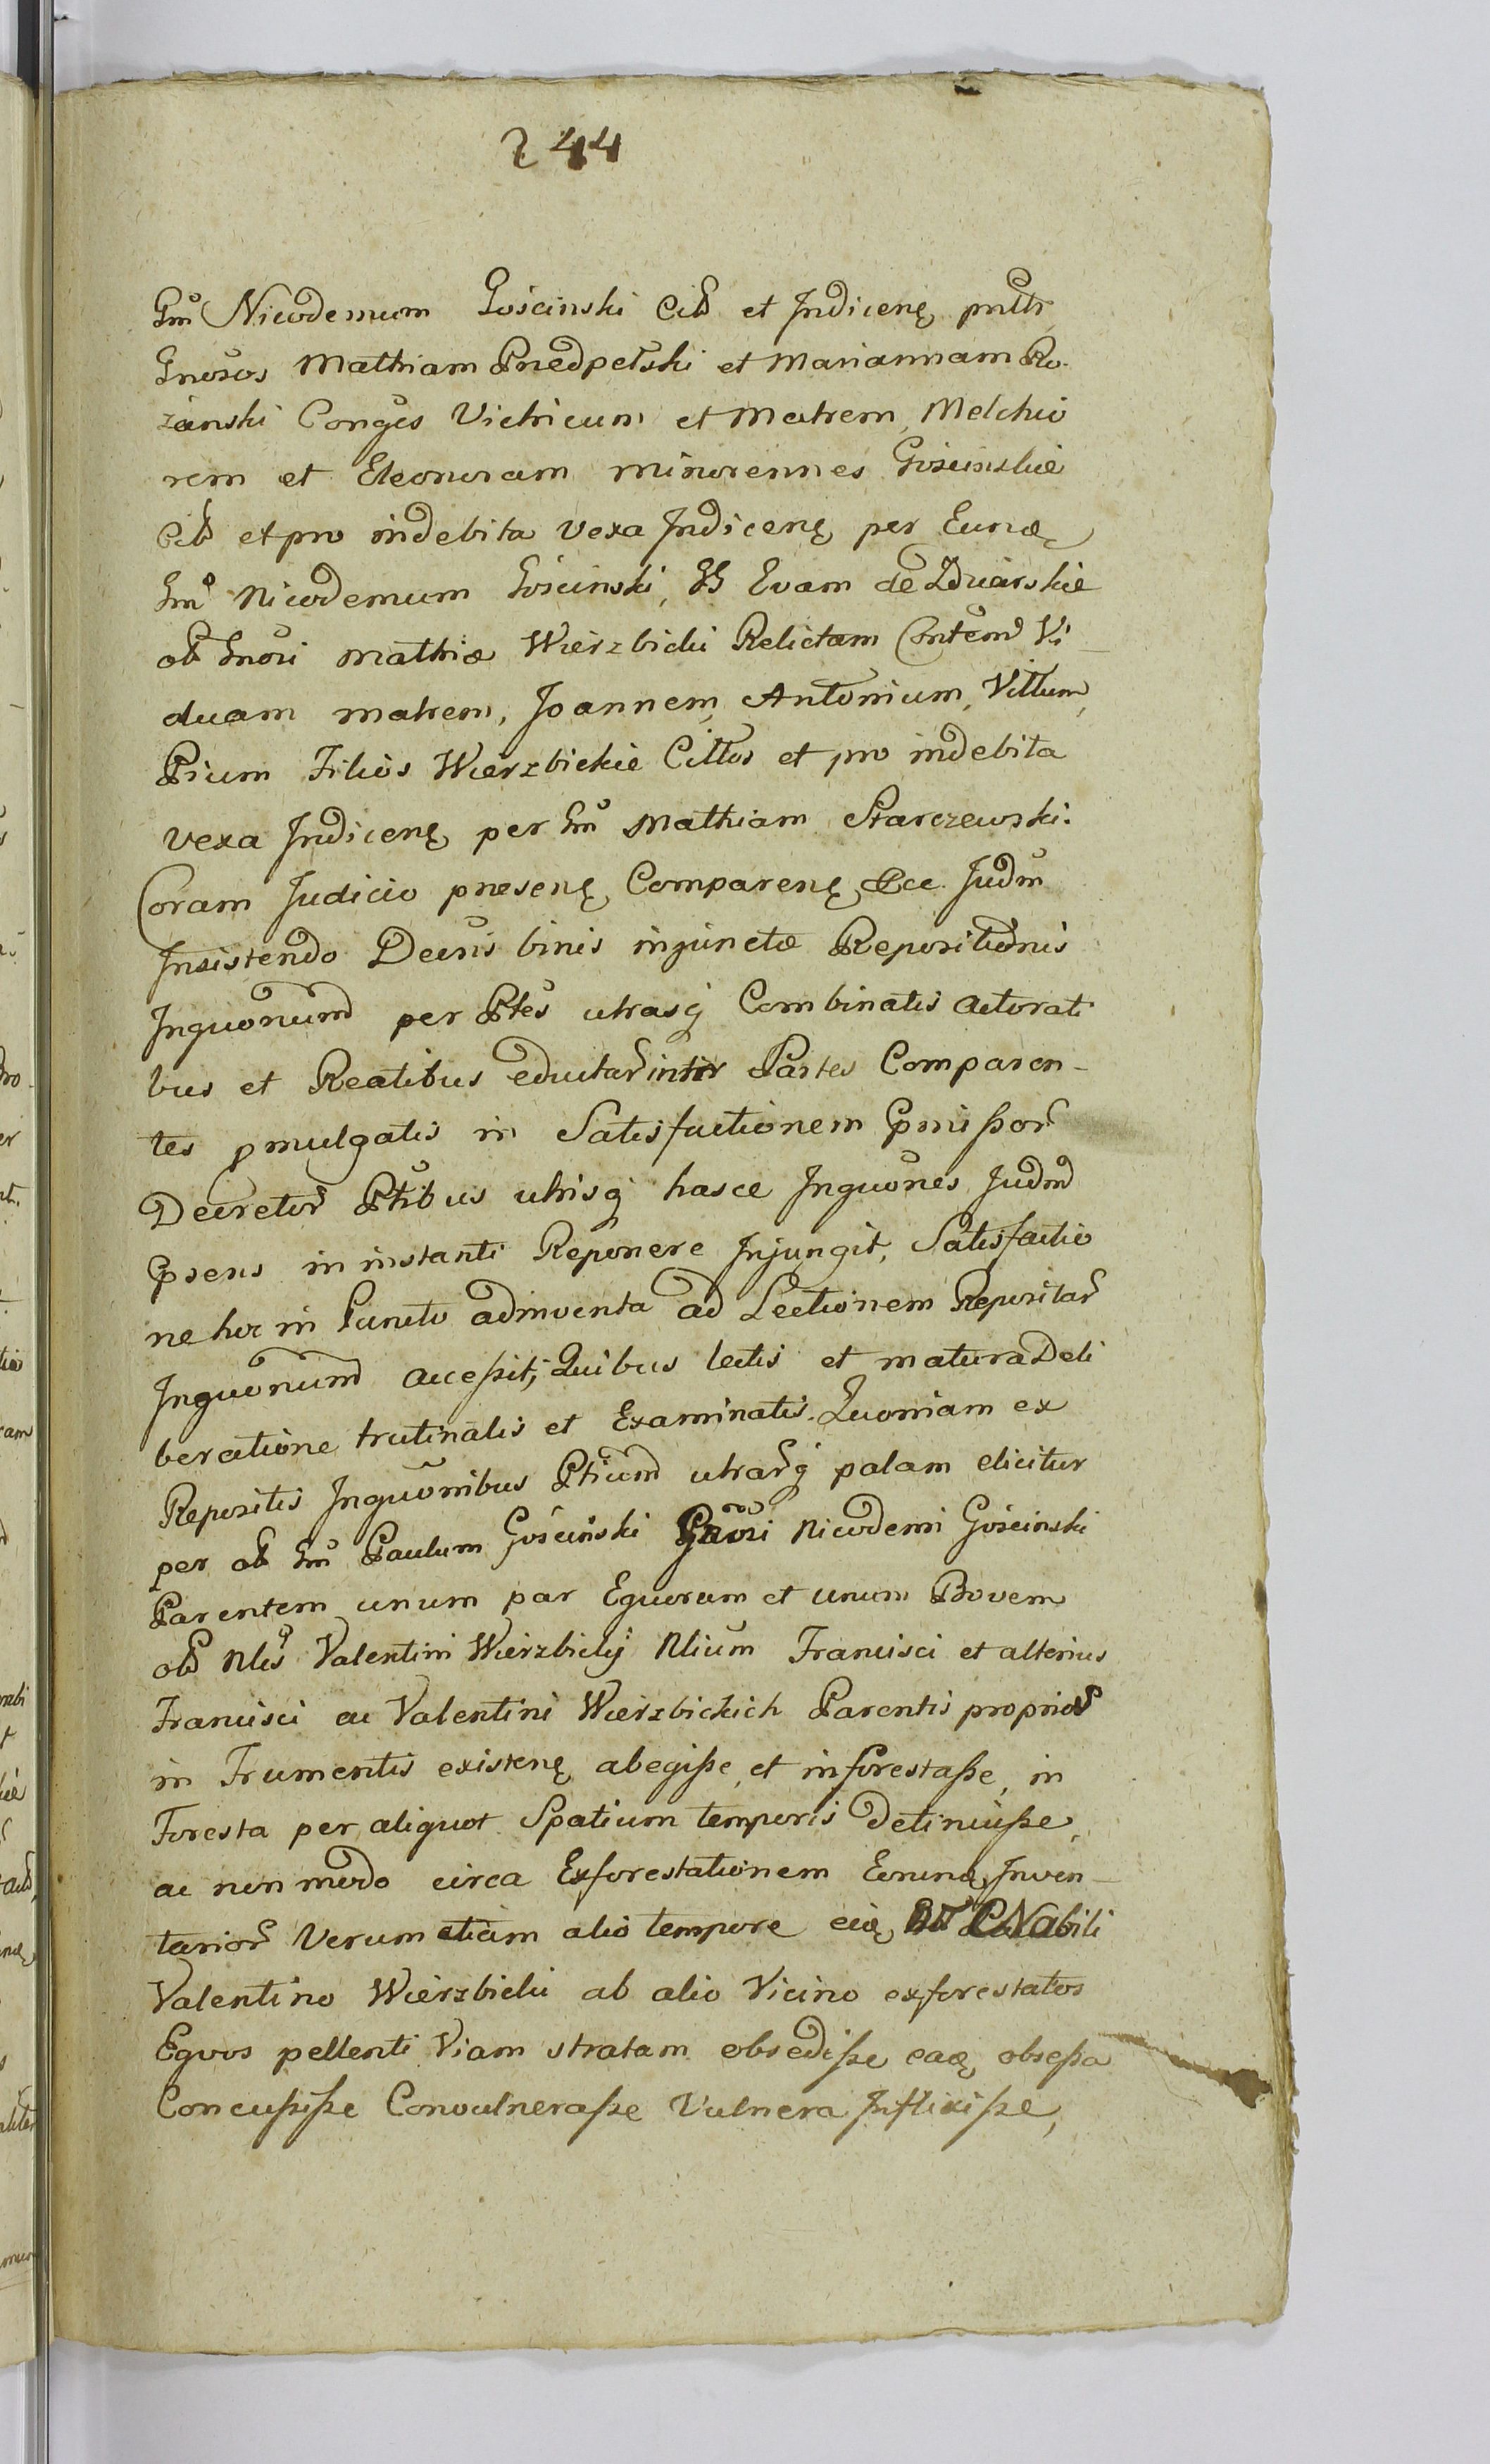 244
Gnũ Nicodemum Goscinski Citt et Indicenę pntlr
Gnosos Mathiam Przedpełski et Mariannam Ro-
zanski Conges Victricum et Matrem, Melchio
rem et Eleonoram minorennes Goscinskie
Citt et pro indebita vexa Indicenę per Eundę
Gnũ Nicodemum Goscinski, GG Evam de Zduńrskie
olb Gnosi Mathiæ Wierzbicki Relictam Contem Vi-
duam matrem, Joannem, Antonium, Vittum,
Pium Filios Wierzbickie Cittos et pro indebita
vexa Indicenę per Gnũ Mathiam Starczewski.
Coram Judicio præsenę Comparenę &cc. Judm
Insistendo Decris binis injunctæ Repositionis
Inquonum per Ptes utrasq Combinatis actorati
bus et Reatibus eductar inter Partes Comparen-
tes pmulgatis in Satisfactionem Pmißor
Decretor Ptibus utrisq hasce Inquones Judm
Psens in instanti Reponere Injungit, Satisfactio
ne hoc in Puncto adinventa ad Lectionem Repositar
Inquonum Acceßit, Quibus lectis et matura Deli
beratione trutinatis et Examinatis. Quoniam ex
Repositis Inquonibus Ptium utrarq palam elicitur
per olb Gnũ Paulum Gościnski Gnosi Nicodemi Goscinski
Parentem unum par Equorum et unum Bovem
olb Nlis Valentini Wierzbickÿ Nlium Francisci et alterius
Francisci ac Valentini Wierzbickich Parentis proprios
in Frumentis existenę abegiße, et inforestaße, in
Foresta per aliquot Spatium temporis Detinuiße,
ac non modo circa Exforestationem Eorundę Inven-
tarior Verum etiam alio tempore eię Nobili
Valentino Wierzbicki ab alio Vicino exforestatos
Equos pellenti Viam stratam obsediße eaę obseßa
Concußiße Convulneraße Vulnera Inflixiße,